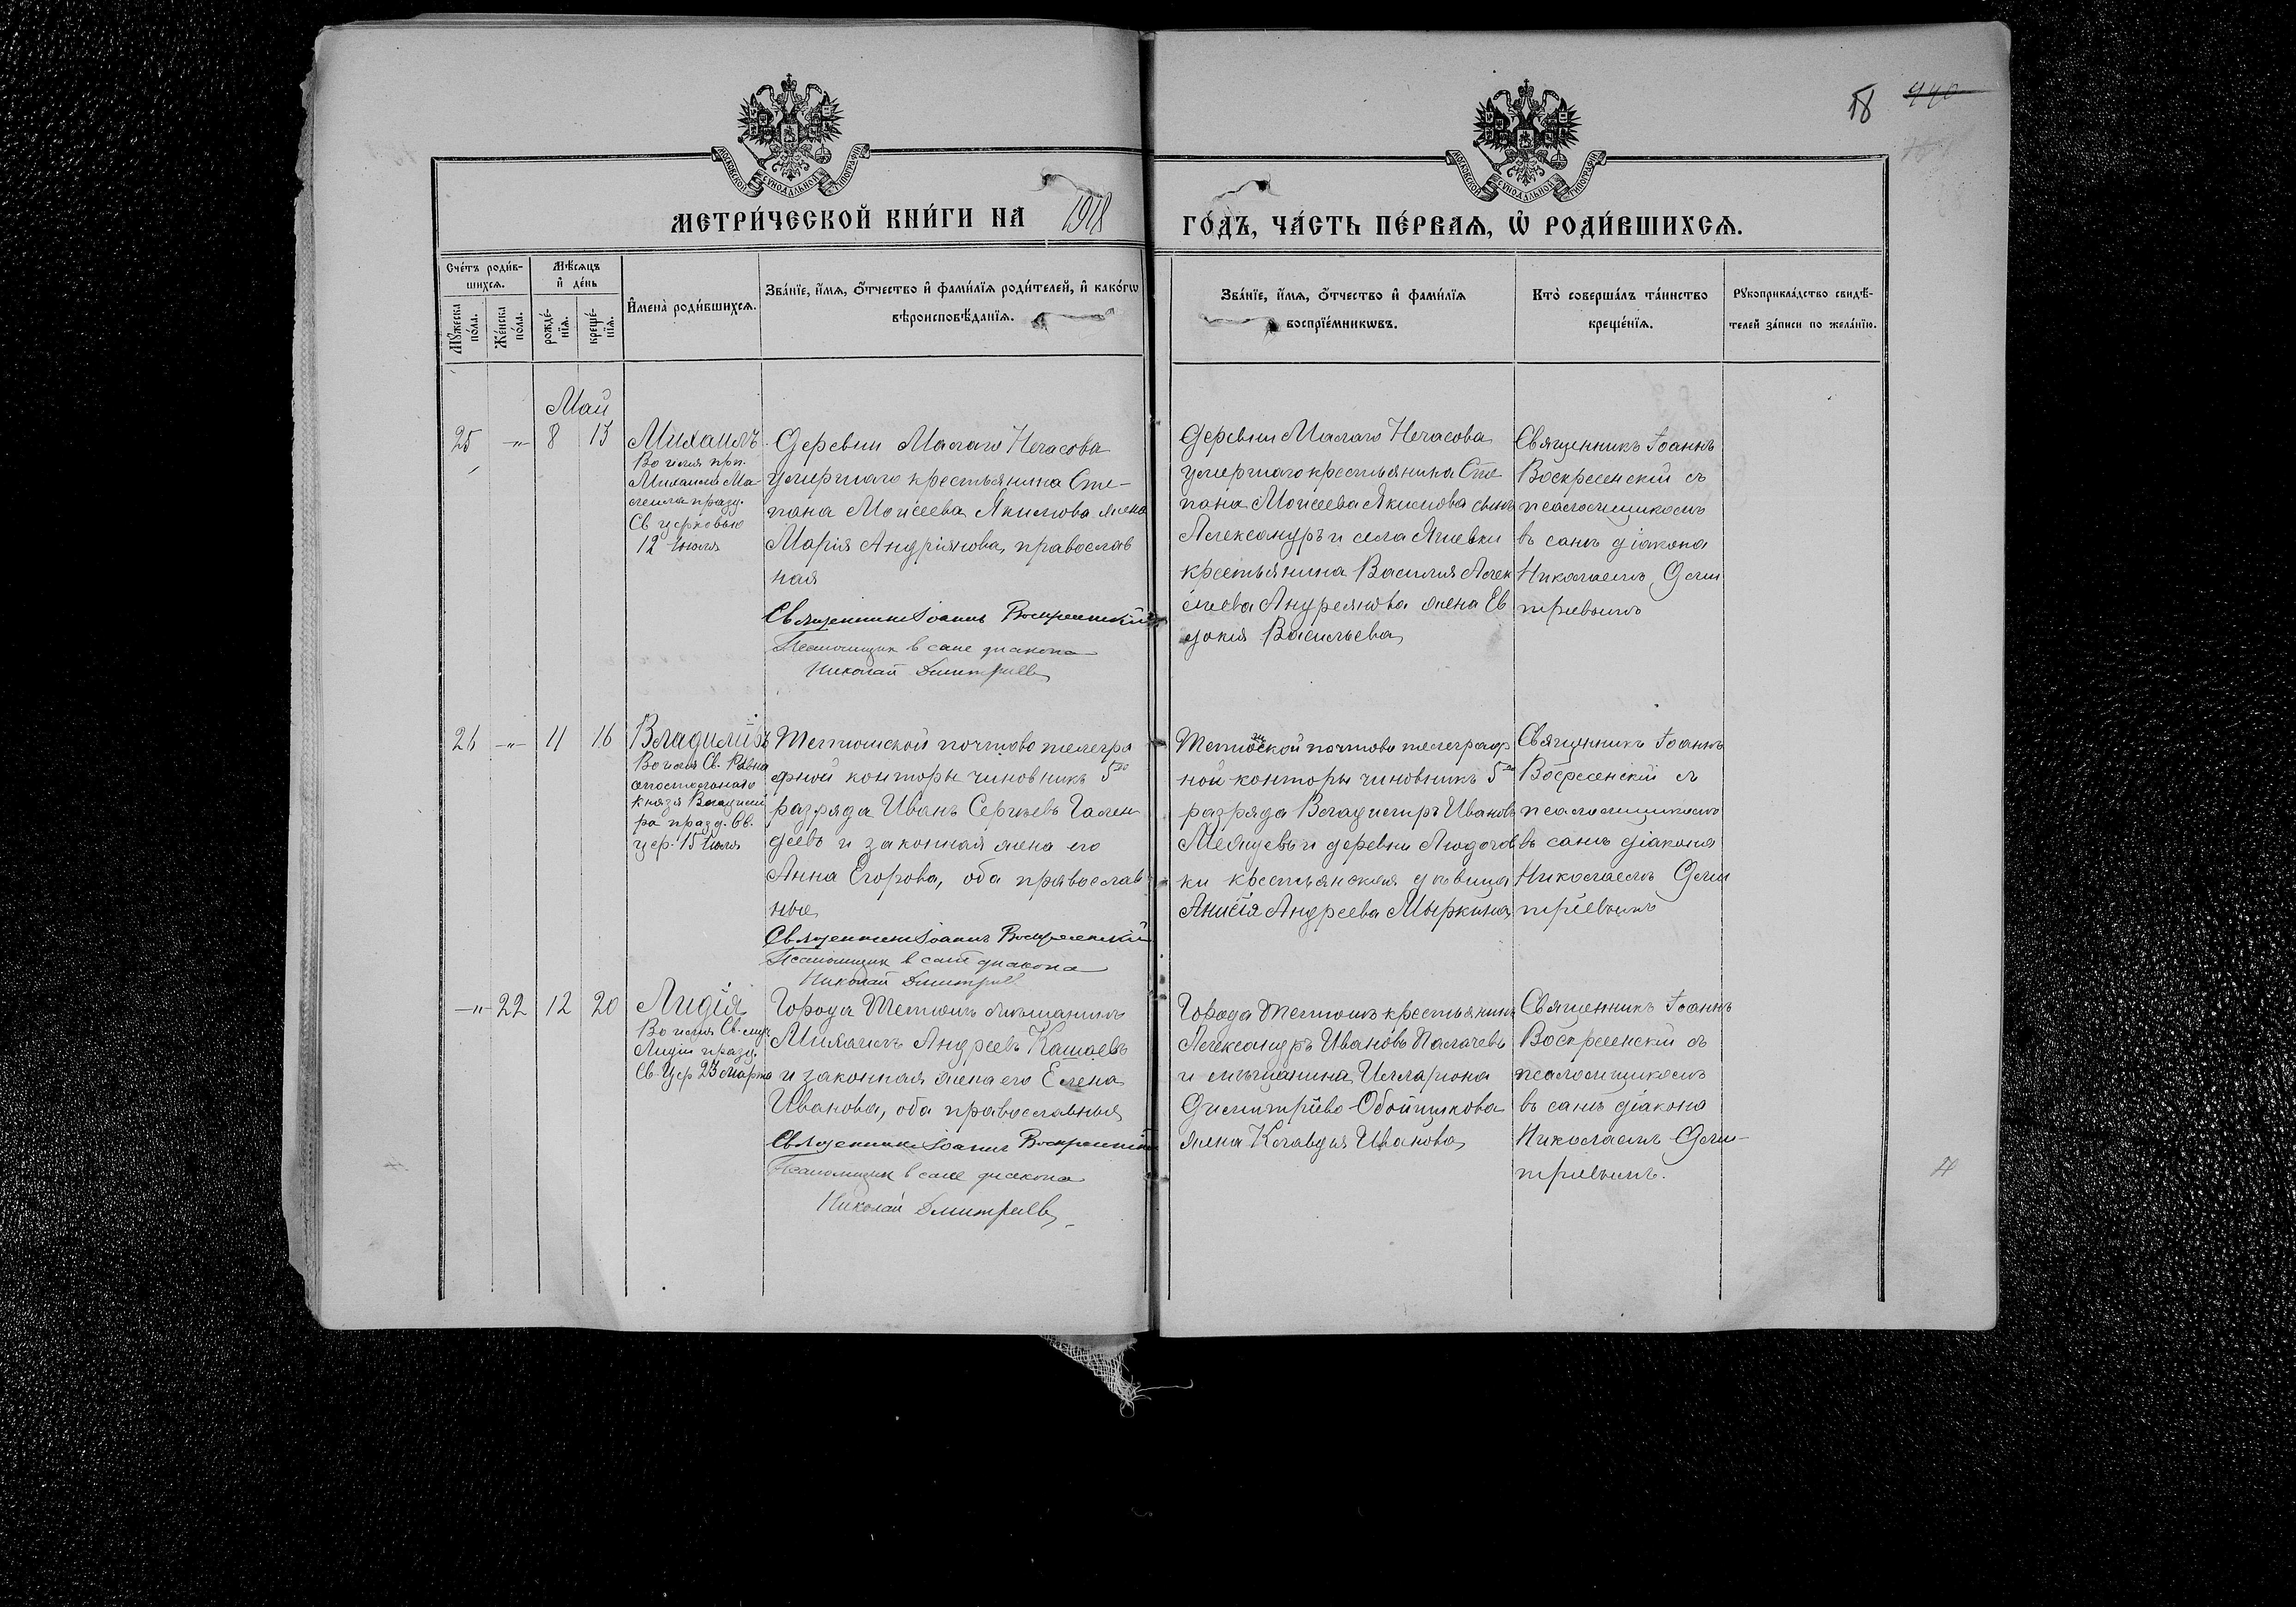 18 440
МОСКОВСКОЙ СѴНОДАЛЬНОЙ ТИПОГРАФІИ
МОСКОВСКОЙ СѴНОДАЛЬНОЙ ТИПОГРАФІИ
МЕТРИ́ЧЕСКОЙ КНИ́ГИ НА 1918 ГО́ДЪ, ЧА́СТЬ ПЕ́РВАЯ, Ѡ РОДИ́ВШИХСѦ.
Сче́тъ роди́в-
шихсѧ.
Мꙋ́жеска
по́ла.
Же́нска
по́ла.
Мѣ́сѧцъ
и҆ де́нь
рожде́-
нїѧ.
креще́-
нїѧ.
И҆мена̀ роди́вшихсѧ.
Зва́нїе, и҆́мѧ, ѻ҆́тчество и҆ фами́лїѧ роди́телей, и҆ како́гѡ
вѣроисповѣ́данїѧ.
Зва́нїе, и҆́мѧ, ѻ҆́тчество и҆ фами́лїѧ
воспрїе́мникѡвъ.
Кто̀ соверша́лъ та́инство
креще́нїѧ.
Рꙋкоприкла́дство свидѣ́-
телей за́писи по жела́нїю.
Май
25 -"- 8 13
Михаилъ
Во имя прп.
Михаила Ма-
леина празд.
Св церковью
12 Июля
Деревни Малаго Нечасова
умершаго крестьянина Сте-
пана Моисеева Якимова жена
Марія Андріянова, православ
ная
Священникъ Іоаннъ Воскресенскій
Псаломщик в сане диакона
Николай Дмитриев
Деревни Малаго Нечасова
умершаго крестьянина Сте
пана Моисеева Якимова сынъ
Александръ и села
крестьянина Василия Алек
сѣева Андреянова жена Ев
докия Васильева
Священникъ Іоаннъ
Воскресенскій съ
псаломщикомъ
въ санѣ діакона
Николаемъ Дми
тріевымъ
26 -"- 11 16
Владиміръ
Во имя Св. Равно
апостольнаго
князя Владими
ра празд. Св.
цер. 15 Июля
Тетюшской почтово телегра
фной конторы чиновникъ 5го
разряда Иванъ Сергѣевъ Гален
деевъ и законная жена его
Анна Егорова, оба православ
ные
Священникъ Іоаннъ Воскресенскій
Псаломщик в сане диакона
Николай Дмитриев
Тетюшской почтово телеграф
ной конторы чиновникъ 5го
разряда Владимиръ Ивановъ
и деревни Людогов
ки крестьянская дѣвица
Анисія Андреева Мыркина
Священникъ Іоаннъ
Воскресенскій съ
псаломщикомъ
въ санѣ діакона
Николаемъ Дми
тріевымъ
-"- 22 12 20
Лидія
Во имя Св. муч.
Лидіи празд.
Св. Цер 23 марта
Города Тетюшъ мѣщанинъ
Михаилъ Андреевъ Кашаевъ
и законная жена его Елена
Иванова, оба православные
Священникъ Іоаннъ Воскресенскій
Псаломщик в сане диакона
Николай Дмитриев
Города Тетюшъ крестьянинъ
Александръ Ивановъ Палачевъ
и мѣщанина Иллариона
Димитріева Обойщикова
жена Клавдия Иванова
Священникъ Іоаннъ
Воскресенскій съ
псаломщикомъ
въ санѣ діакона
Николаемъ Дми-
тріевымъ.